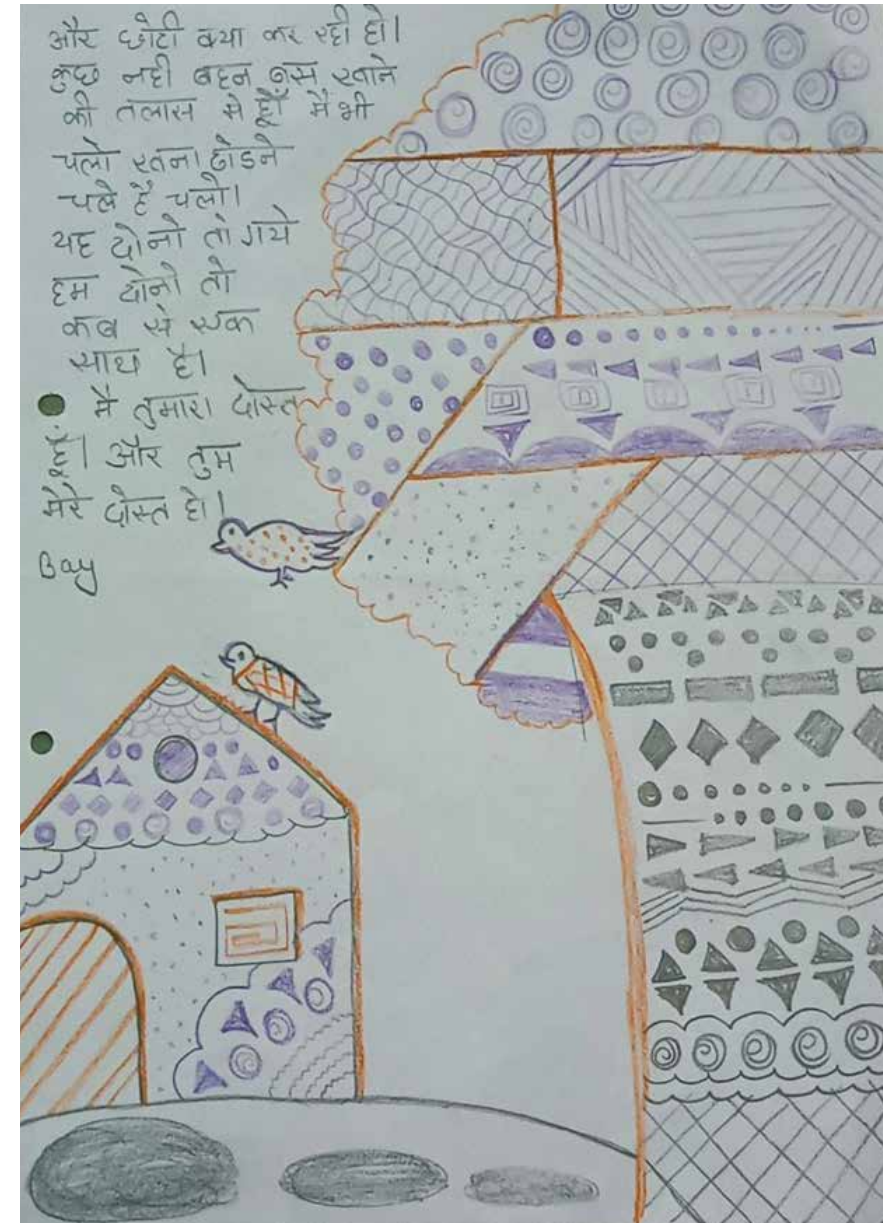 और छोटी क्या कर रही हो।
कुछ नही बहन बस खाने
की तलास मे हूँ मै भी
चलो खना ढोडने
चले है चलो।
यह दोनो तो गये
हम दोनो तो
कब से एक
साथ है।
मै तुमारा दोस्त
हूँ। और तुम
मेरे दोस्त हो।
Bay